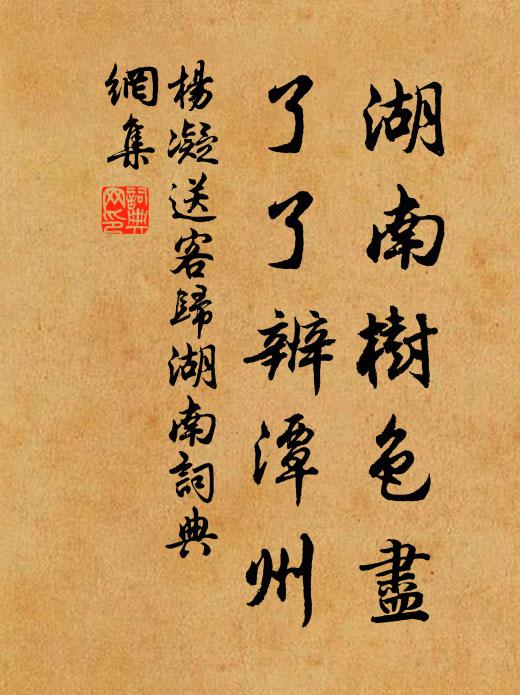 湖南樹色盡
了了辨潭州
楊凝送客歸湖南詞典
網集
詞典網印